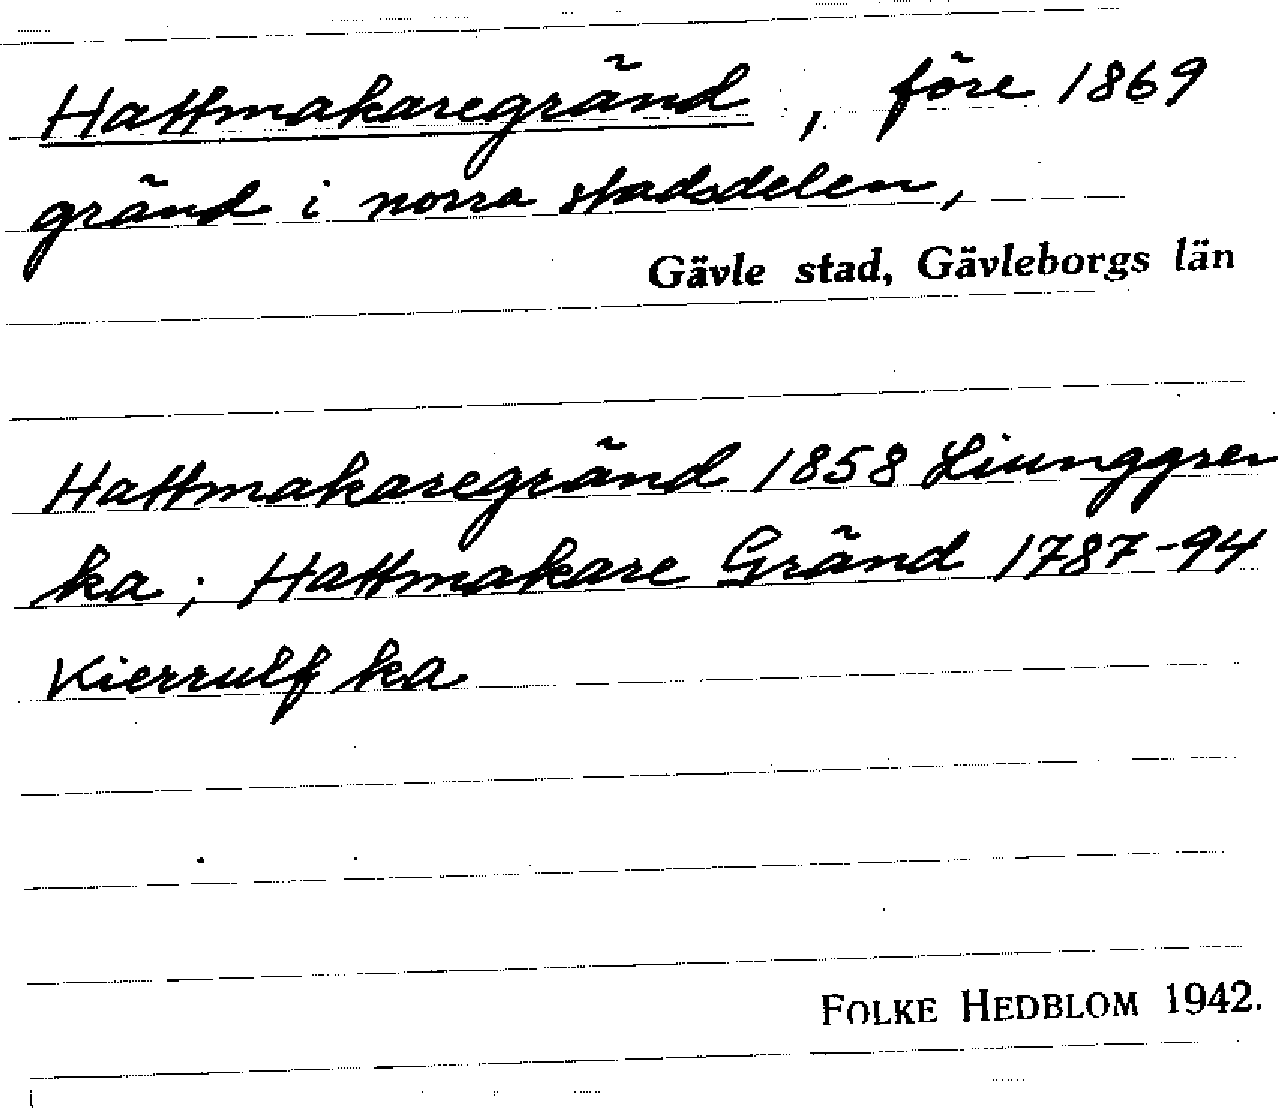 Hattmakaregränd, före 1869
gränd i norra stadsdelen,
Gävle stad, Gävleborgs län
Hattmakaregränd 1858 Liunggren
ka; Hattmakare Gränd 1787-94
Kierrulf ka
FOLKE HEDBLOM 1942.